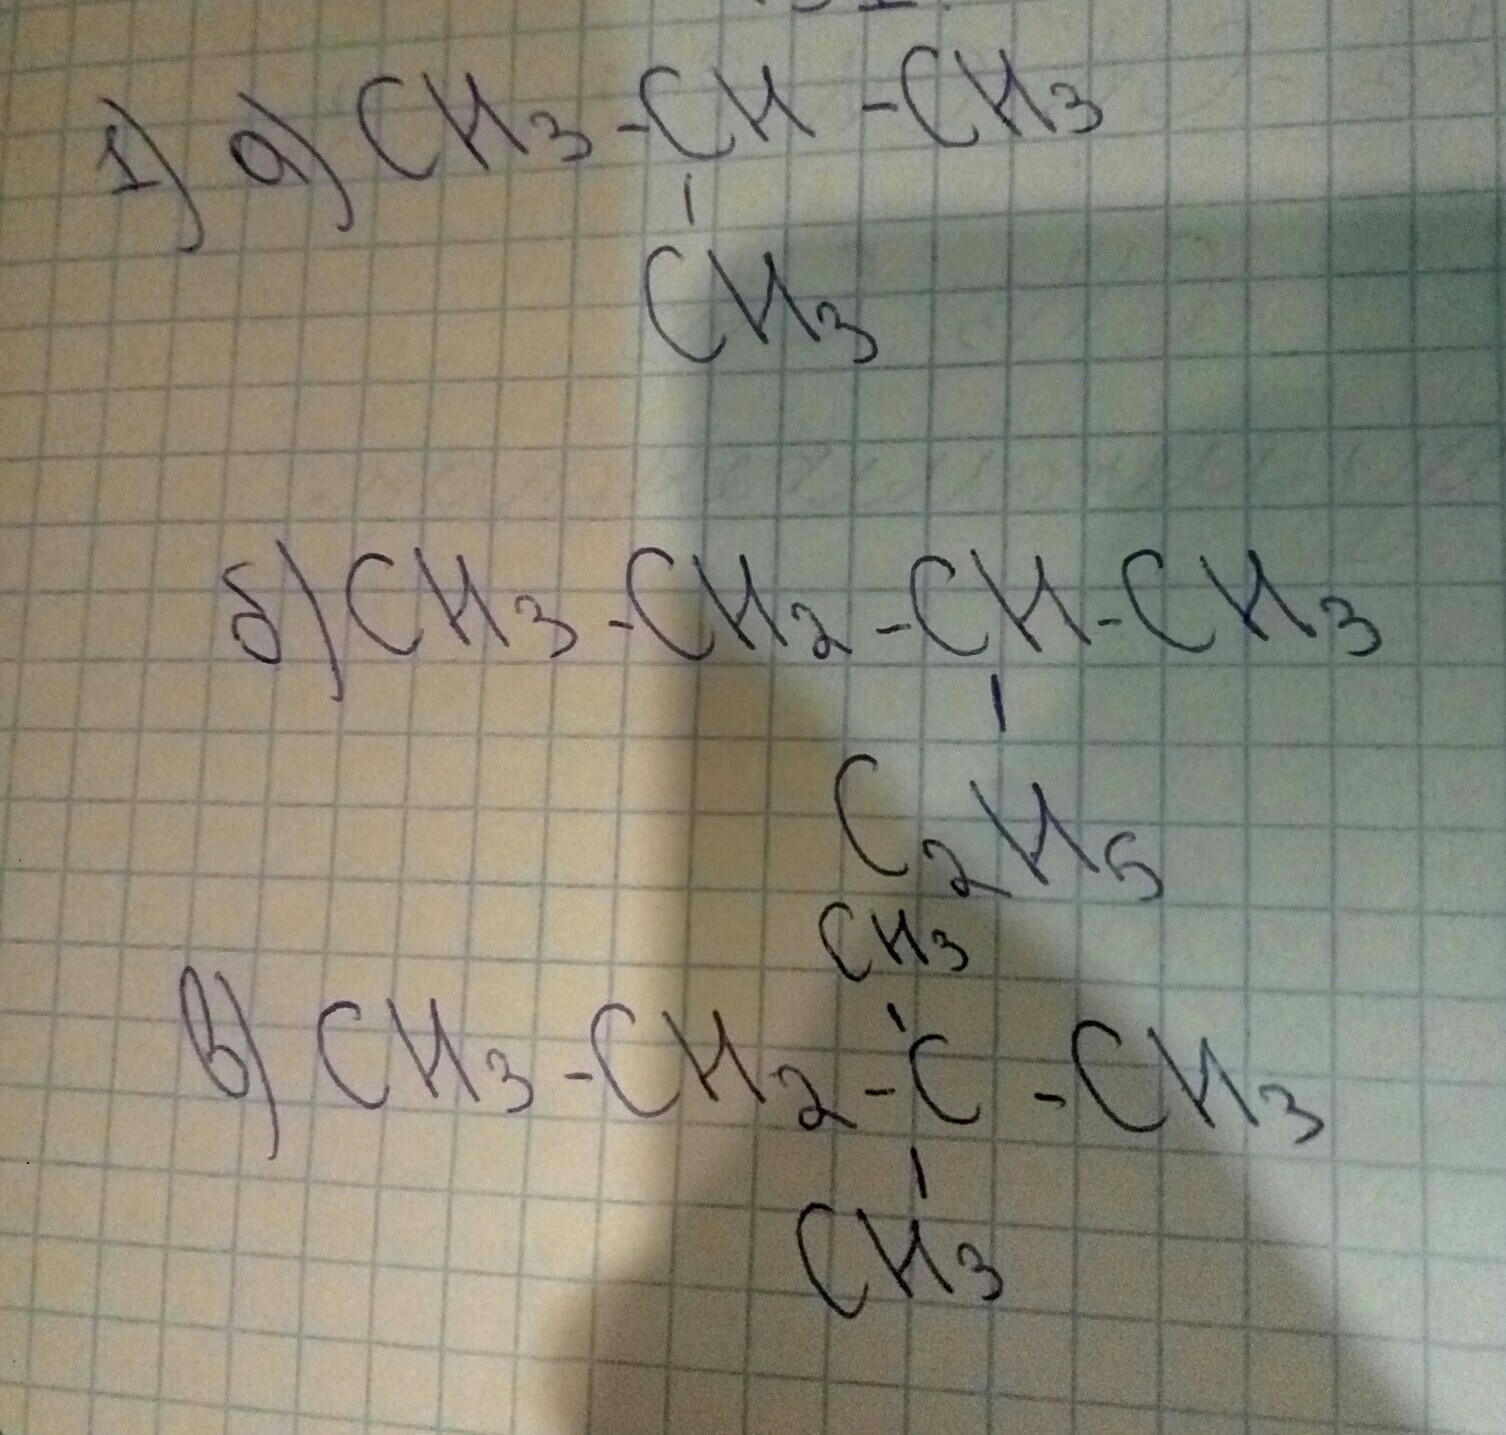 1) а) CH3 - CH - CH3
|
CH3
б) CH3 - CH2 - CH - CH3
|
C2H5
CH3
|
в) CH3 - CH2 - C - CH3
|
CH3